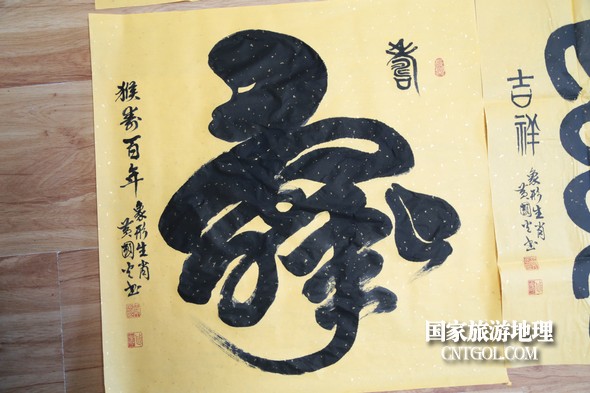 壽
猴寿百年
象形生肖
黄國书
吉祥
象形生肖
黄國书
国家旅游地理
CNTGOL.COM